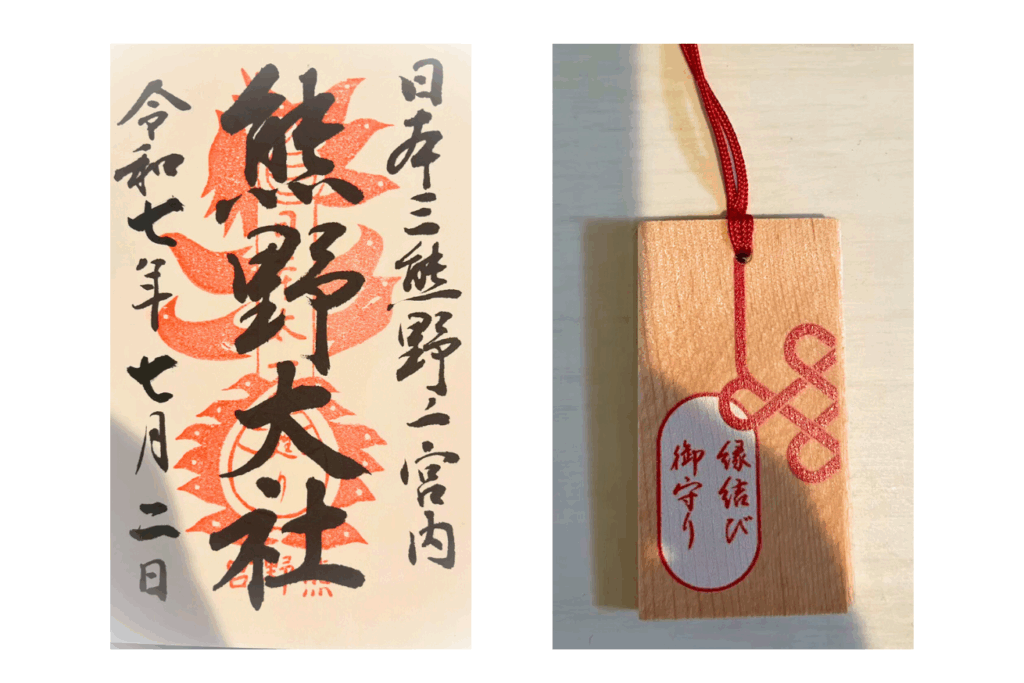 日本三熊野ノ一宮内
熊野大社
令和七年七月二日
縁結び
御守り